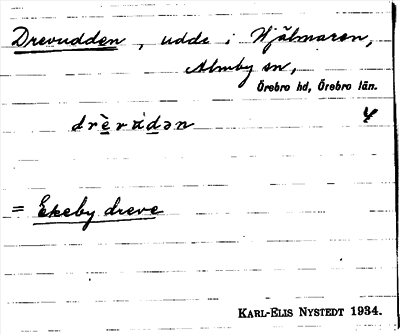 Drevudden, udde i Hjälmaren,
Almby sn,
Örebro hd, Örebro län.
drè̱vùdən 4
= Ekeby dreve
KARL-ELIS NYSTEDT 1934.